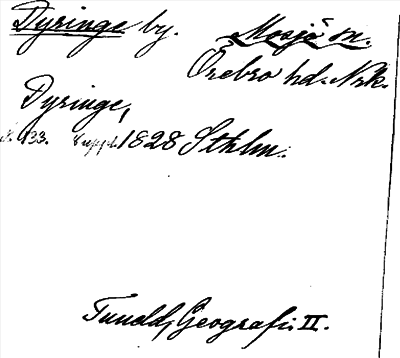 Dyringe by. Mosjö sn.
Örebro hd. Nrk.
Dyringe,
s. 133. Uppl. 1828 Sthlm.
Tuneld, Geografi II.